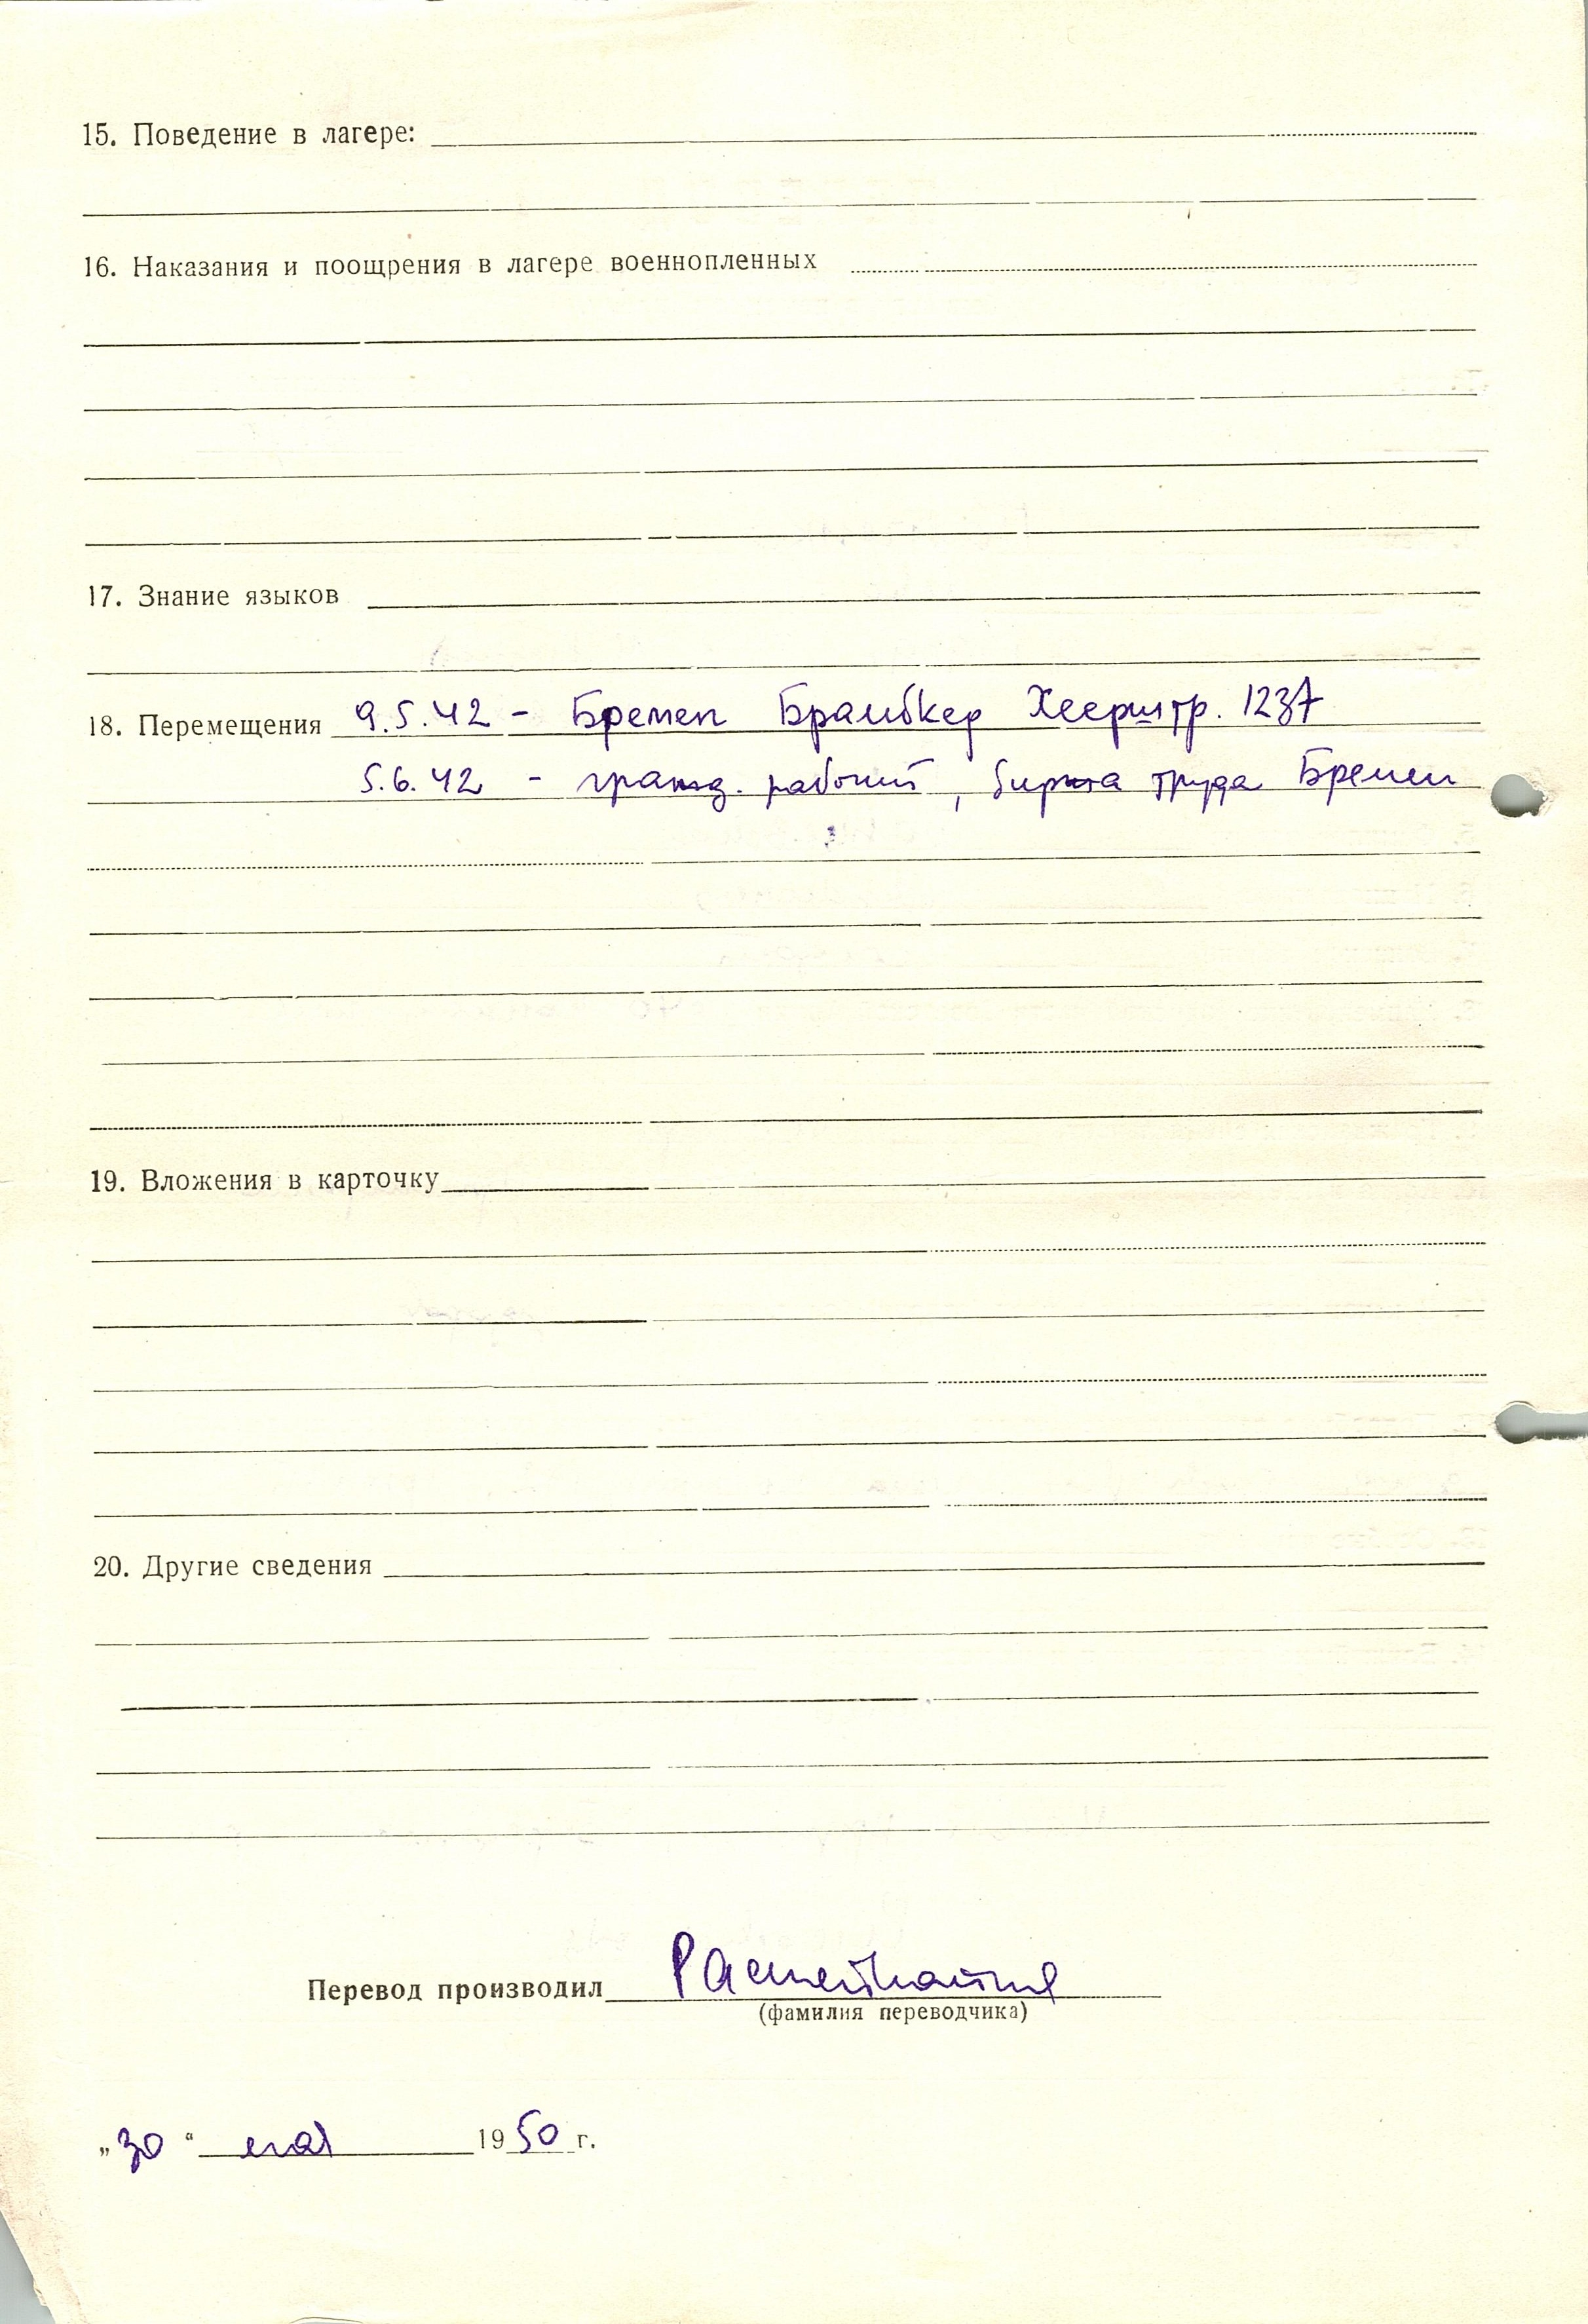 15. Поведение в лагере:
16. Наказания и поощрения в лагере военнопленных
17. Знание языков
18. Перемещения 9.5.42 - Бремен Брамбкер Хеерштр. 1237
5.6.42 - гражд. рабочий, биржа труда Бремен
19. Вложения в карточку
20. Другие сведения
Перевод производил
(фамилия переводчика)
„30“ мая 1950 г.